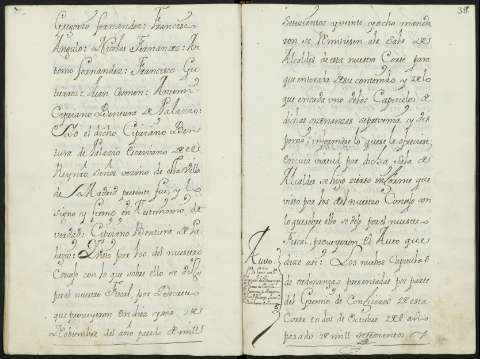 Gregorio fernandez: Francisco
Angulo: Nicolas Fernandez: An
tonio fernandez: Francisco Gu
tierrez: Juan Antonio
Cypriano Bentura de Palazio:
Yo el dicho Cipriano Ben
tura de Palazio escrivano de el
Reyno Señor vezino de esta Villa
de Madrid presente fui, y lo
signo y firmo en testimonio de
verdad: Cipriano Bentura de Pa
lazio: Y visto por los del nuestro
Consejo con lo que sobre ello se dijo
por el nuestro Fiscal por Decreto
que proveyeron en diez y seis de
Nobiembre del año pasado de mill
38
setezientos y veinte y ocho manda
ron se remitiesen a la Sala de
Alcaldes de esta nuestra Corte para
que enterada de su contenido y de lo
que en cada uno de los Capitulos de
dichas ordenanzas se prevenia y dis
ponia informase lo que se le ofreciese
en cuia virtud por dicha Sala de
Alcaldes se hizo zierto informe que
visto por los del nuestro Consejo con
lo que sobre ello se dijo por el nuestro
Fiscal proveyeron el Auto que
Auto
dize asi: Los nuebos Capitulos
de ordenanzas presentadas por parte
del Gremio de Confiteros de esta
Corte en dos de Octubre de el año
pasado de mill setezientos